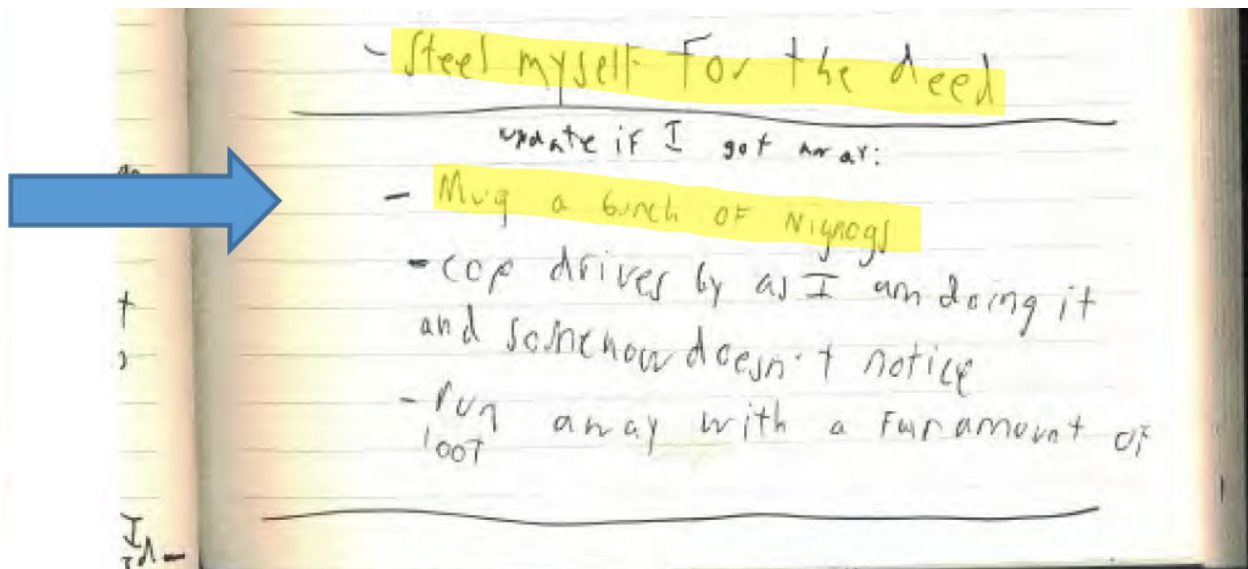 - Steel myself for the deed
update if I got away:
- Mug a bunch of Nignogs
- cop drives by as I am doing it
and somehow doesn't notice
- run away with a fair amount of
loot
I